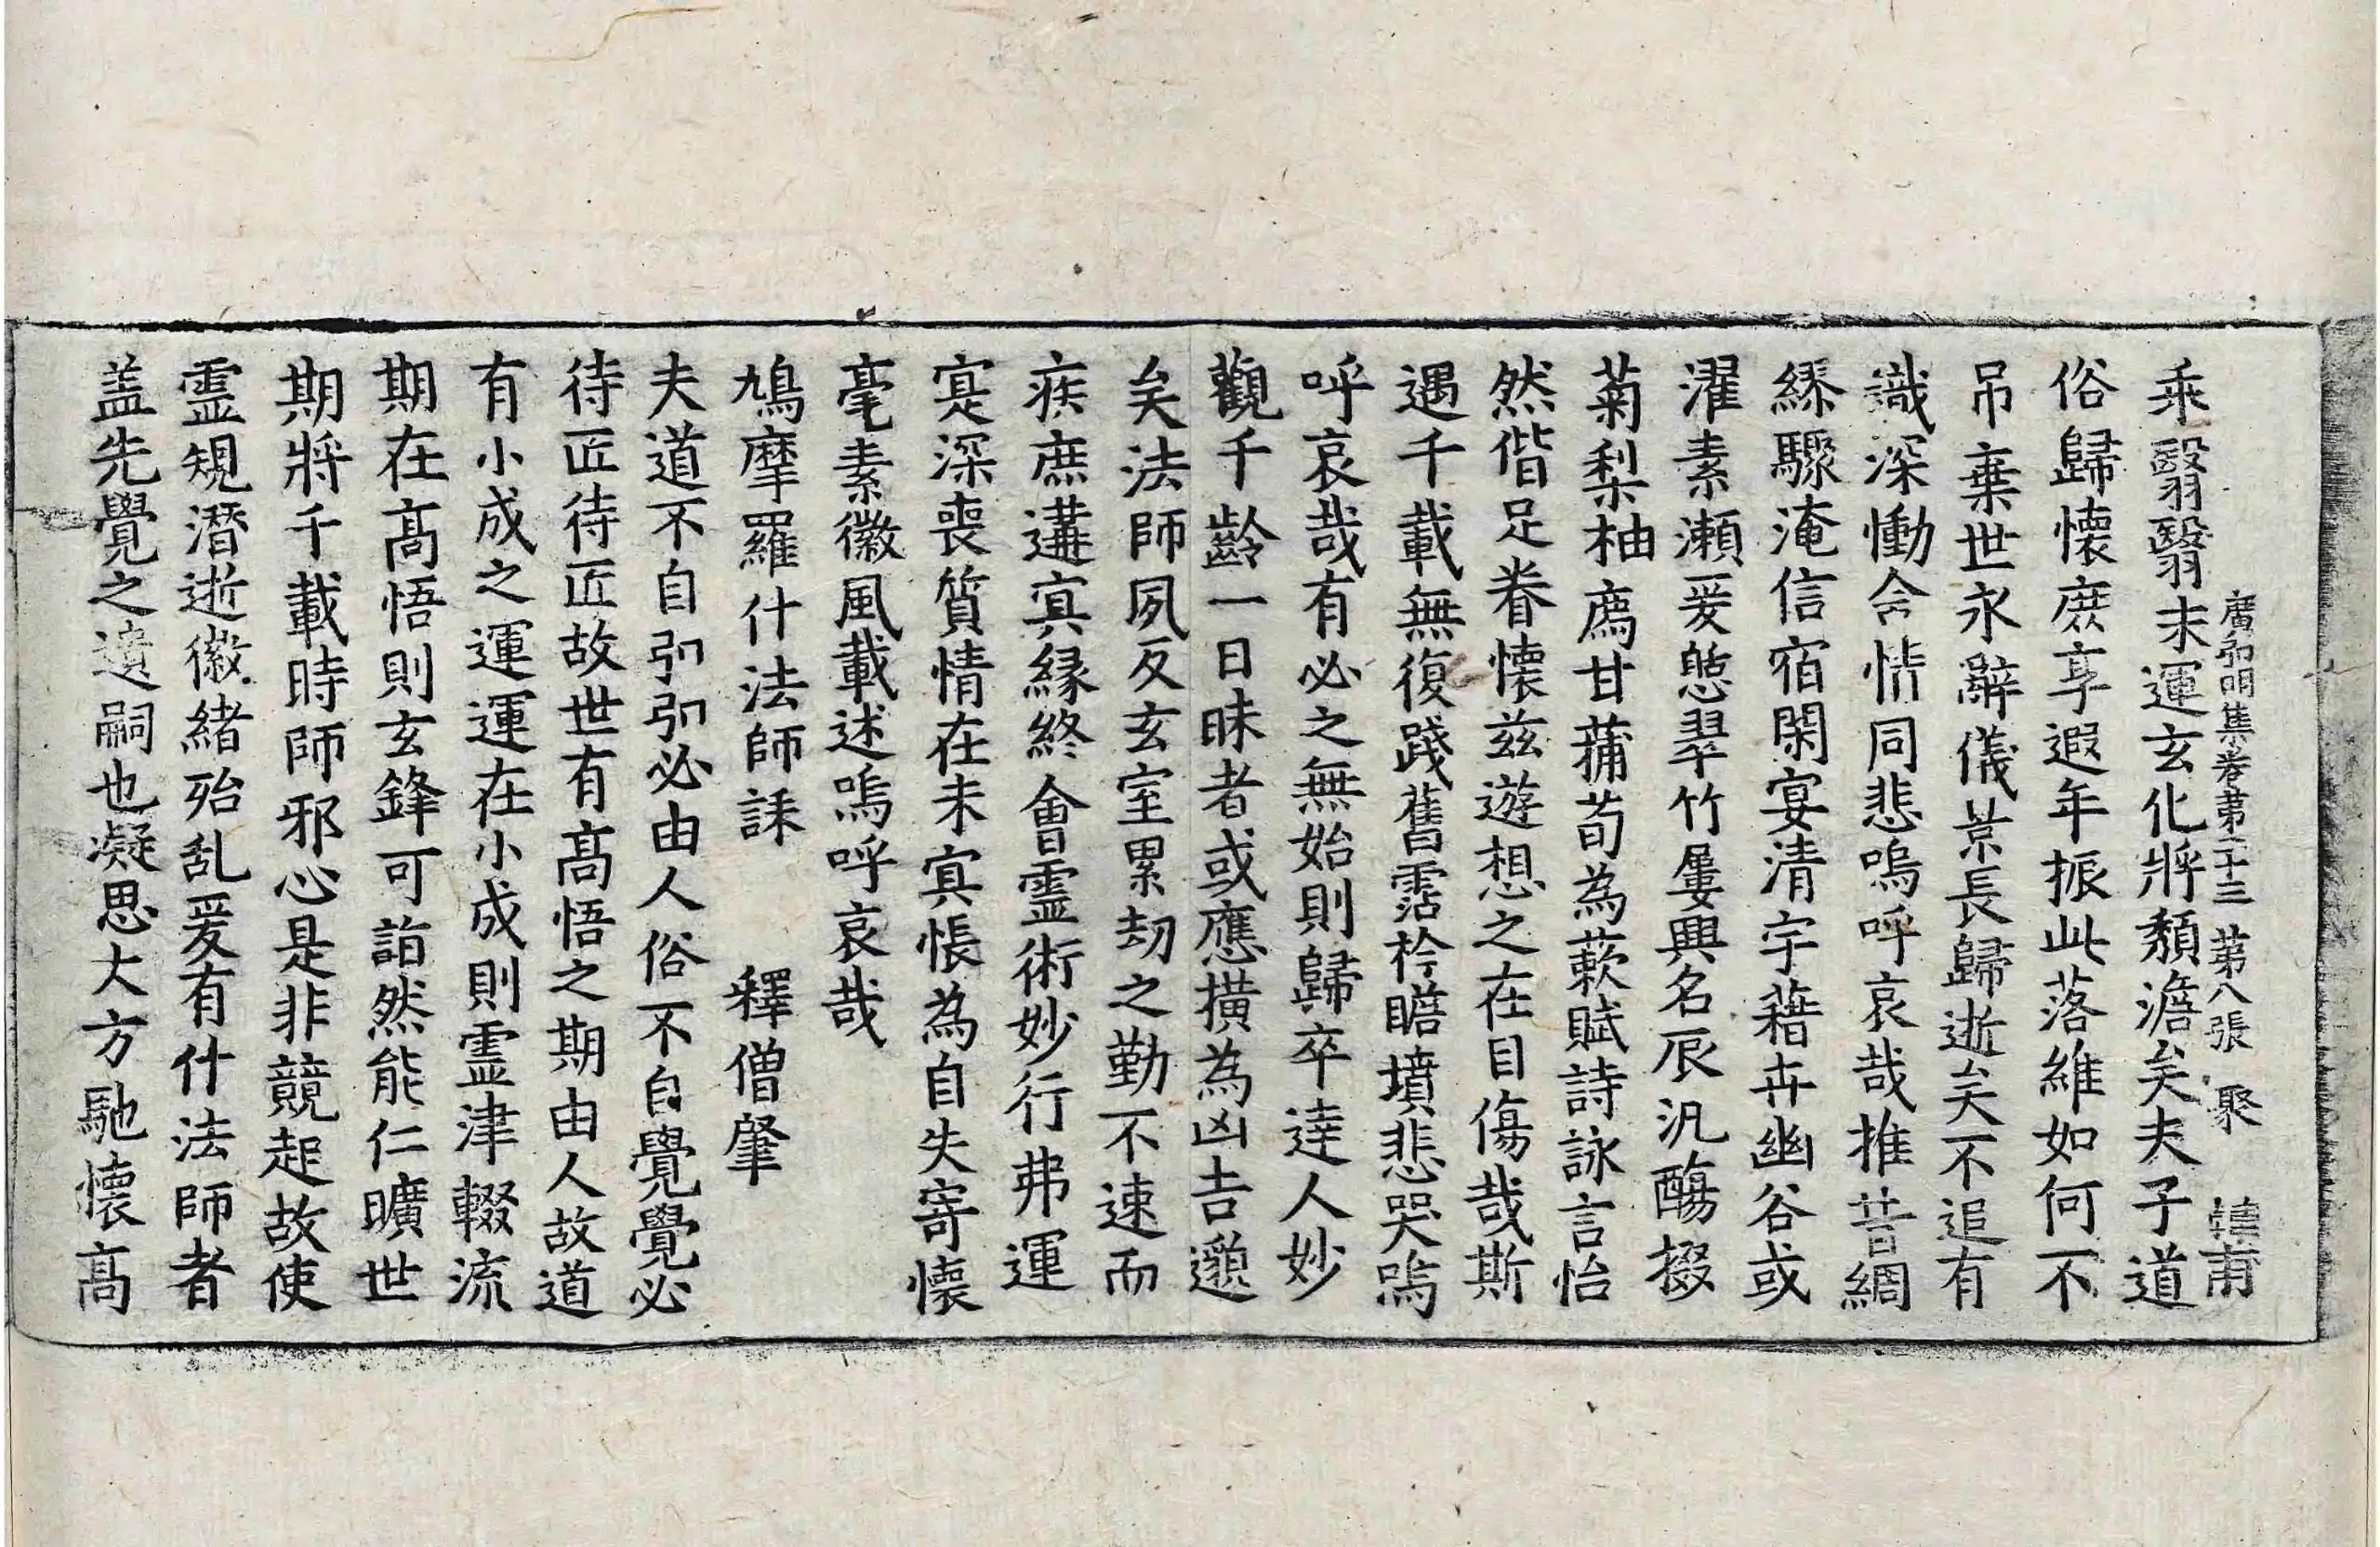 廣弘明集卷第二十三 第八張 聚 甫
乘翳翳末運玄化將頽澹矣夫子道
俗歸懷庶享遐年振此落維如何不
吊棄世永辭儀景長歸逝矣不追有
識深慟含情同悲嗚呼哀哉推昔綢
繆驟淹信宿閑宴清宇藉卉幽谷或
濯素瀬爰憩翠竹屢興名辰汎觴掇
菊梨柚薦甘蒲荀為蔌賦詩詠言怡
然偕足眷懷兹遊想之在目傷哉斯
遇千載無復踐舊霑衿瞻墳悲哭嗚
呼哀哉有必之無始則歸卒達人妙
觀千齡一日昧者或應横為凶吉邈
矣法師夙反玄室累劫之勤不速而
疾庶遘冥緣終會霊術妙行弗運
寔深喪質情在未冥悵為自失寄懷
毫素徽風載述嗚呼哀哉
鳩摩羅什法師誄 釋僧肇
夫道不自引引必由人俗不自覺覺必
待匠待匠故世有髙悟之期由人故道
有小成之運運在小成則霊津輟流
期在髙悟則玄鋒可詣然能仁曠世
期將千載時師邪心是非競起故使
霊規潛逝徽緒殆乱爰有什法師者
盖先覺之遺嗣也凝思大方馳懷髙